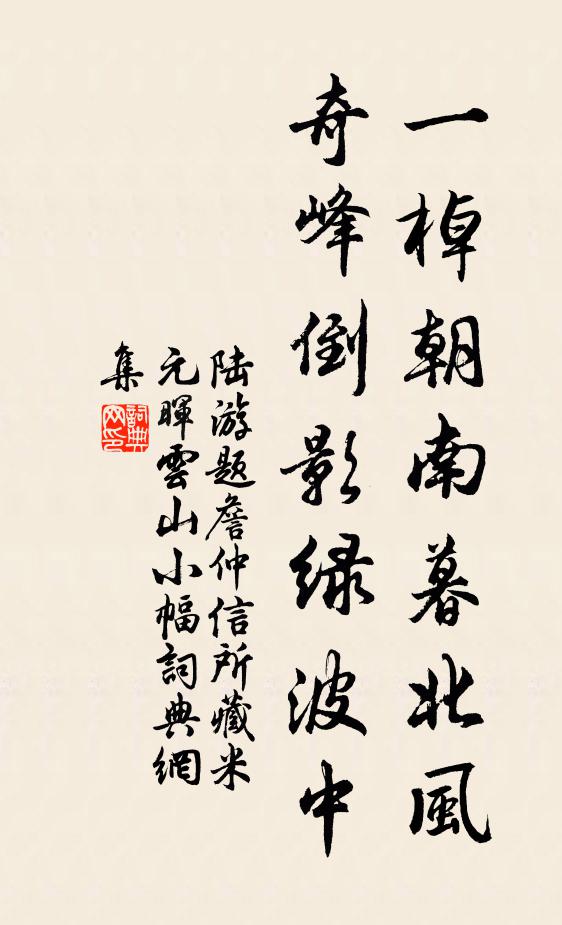 一棹朝南暮北風
奇峰倒影绿波中
陆游题詹仲信所藏米
元暉雲山小幅詞典網
集
詞典網印